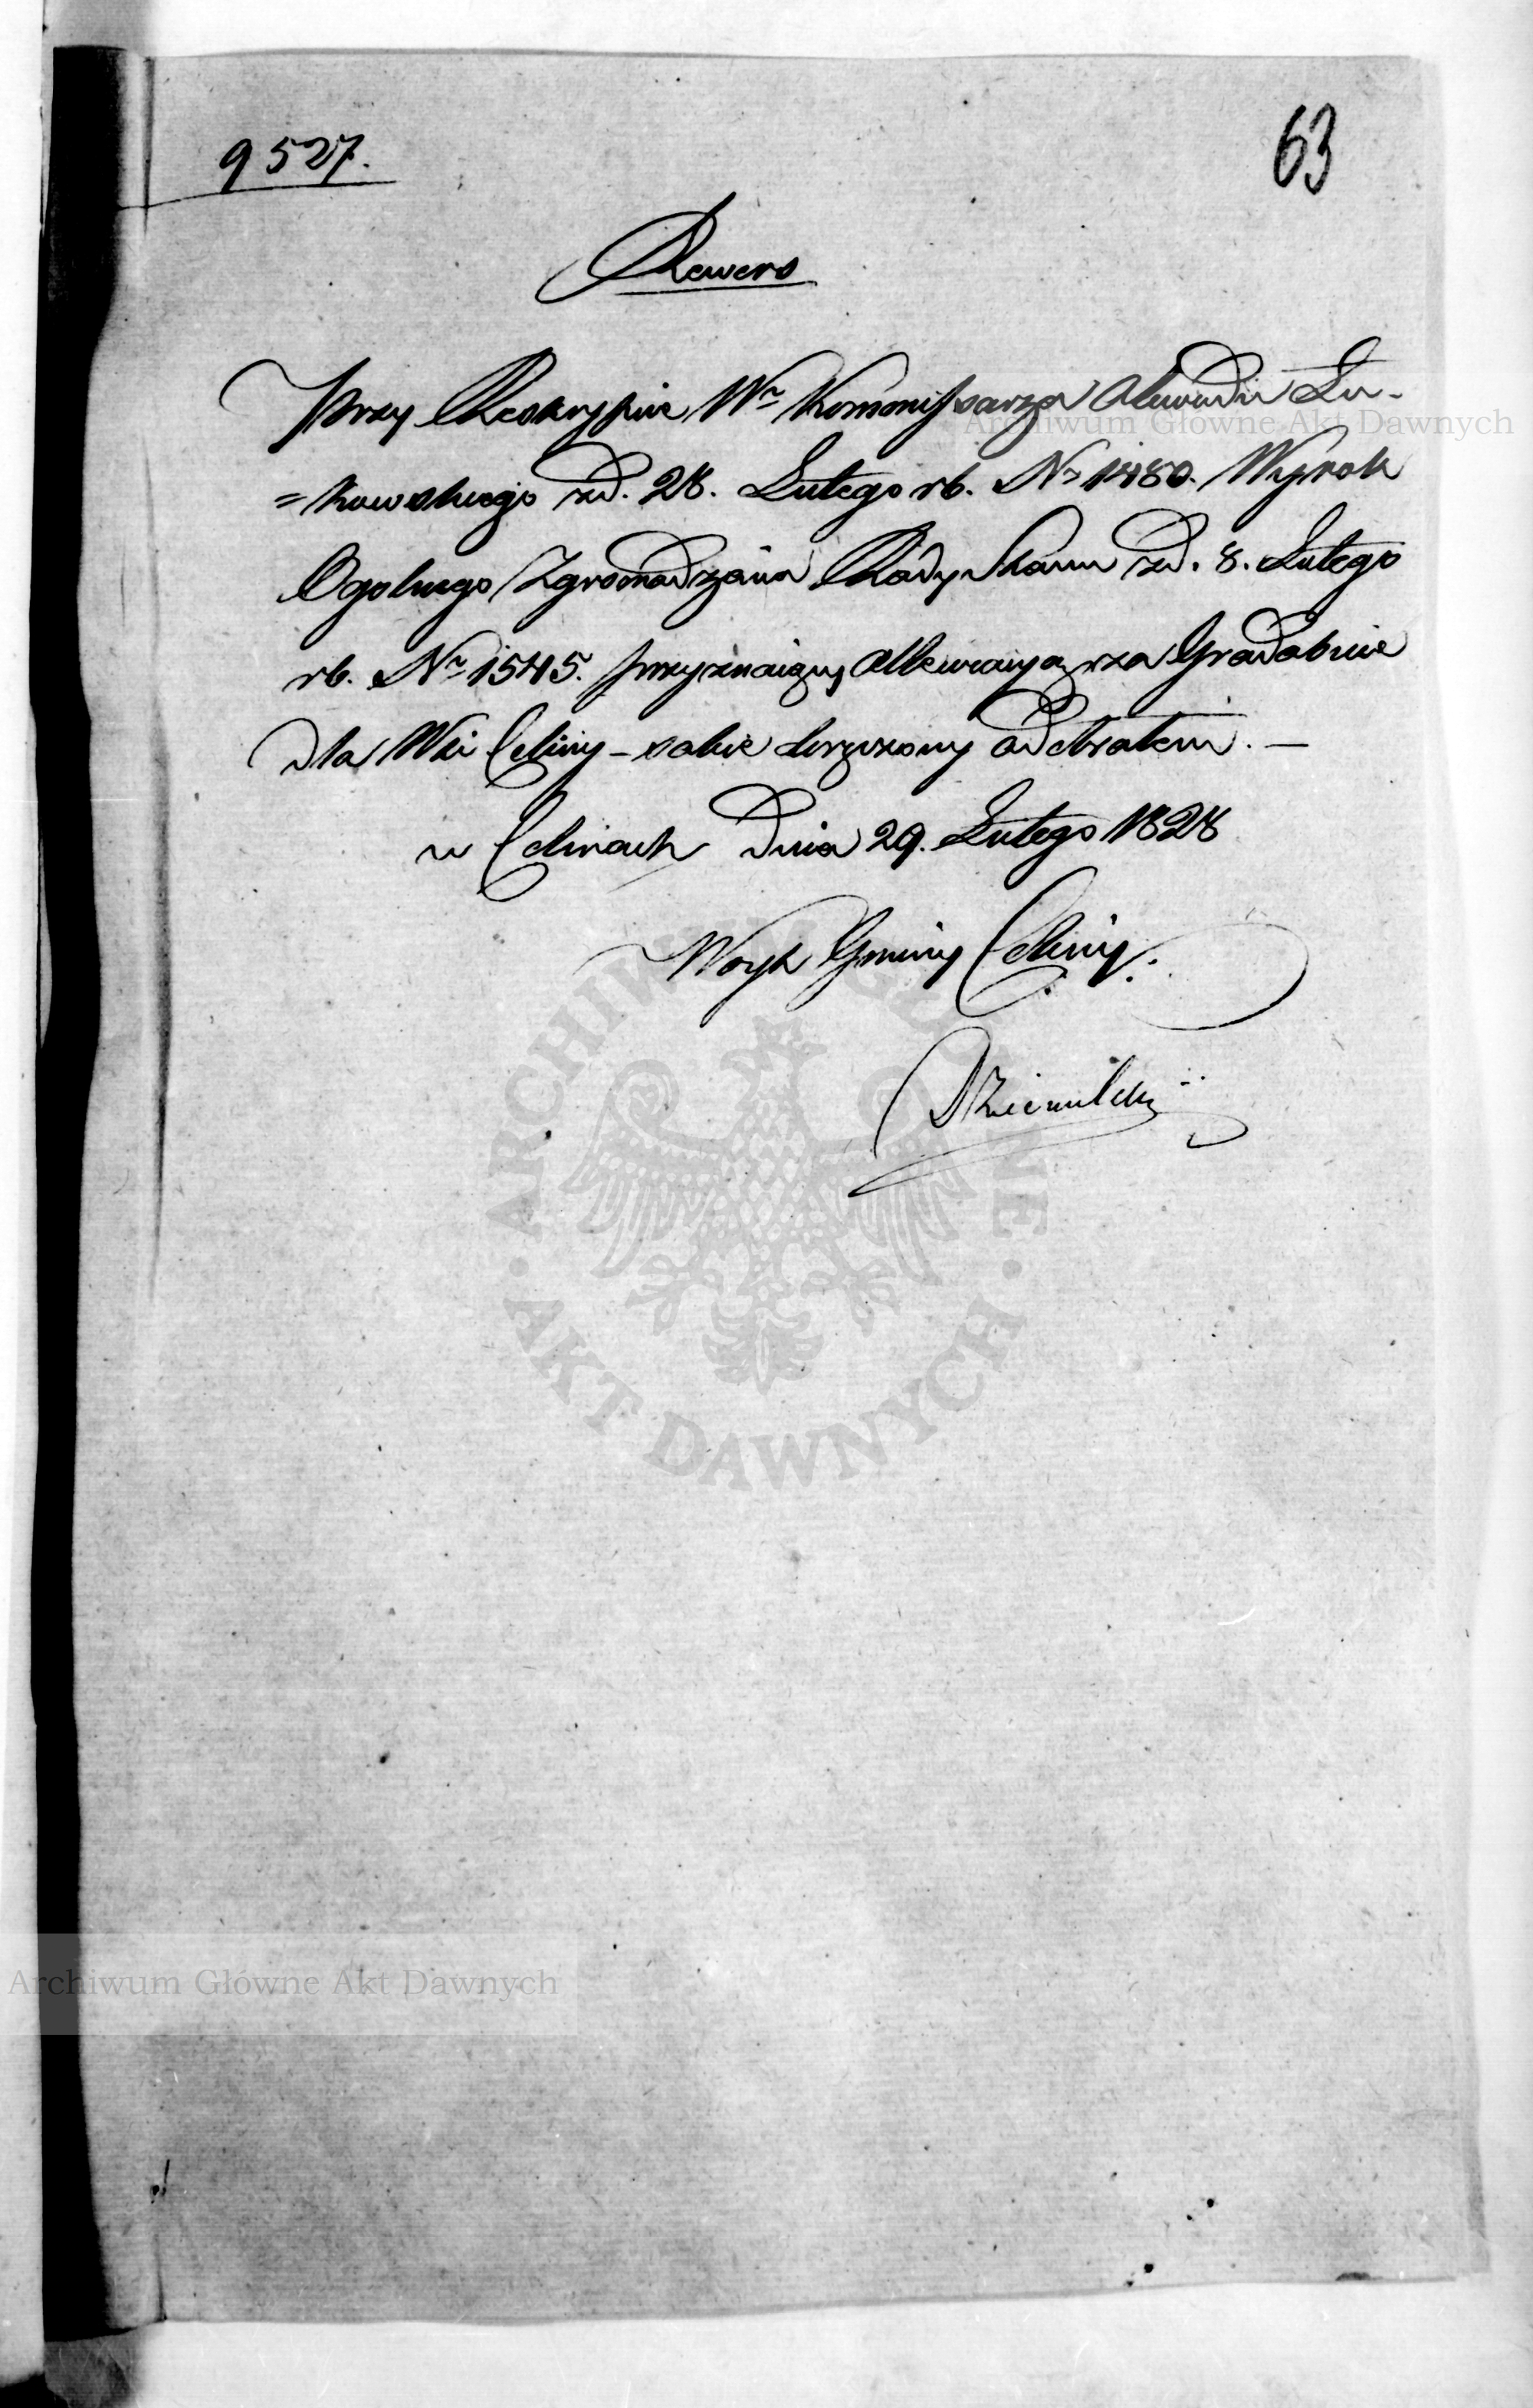 9527.
63
Rewers
Przy Reskrypcie Wo Kommissarza Obwodu Łu-
=kowskiego zd. 28. Lutego rb. No 1480. Wyrok
Ogolnego Zgromadzenia Rady Stanu zd. 8. Lutego
rb. No 1545. przyznaiący za Gradobicie
dla Wsi Celiny – sobie doręczony odebrałem. –
w Celinach Dnia 29. Lutego 1828
Woyt Gminy Celiny.
Archiwum Główne Akt Dawnych
ARCHIWUM GŁÓWNE
AKT DAWNYCH
Archiwum Główne Akt Dawnych